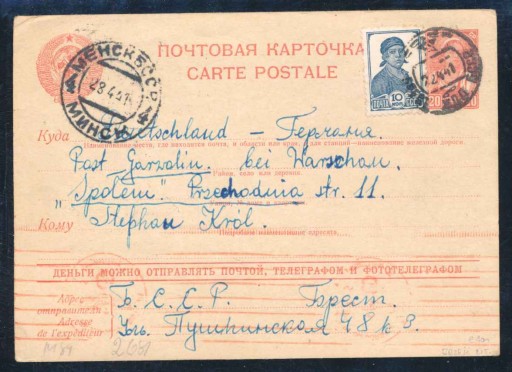 ПОЧТОВАЯ КАРТОЧКА
CARTE POSTALE
МЕНСК БССР
28 4 41
МИНСК
ПОЧТА 10 КОП
22 4 41
20
Куда Deutschland – Германия.
Наименование места, где находится почта, и области или края, а для станций—наименование железной дороги
Post Garwolin. bei Warschau.
Район, село или деревня.
"Społem". Przechodnia str. 11.
Кому Stephan Król.
Подробное наименование адресата
ДЕНЬГИ МОЖНО ОТПРАВЛЯТЬ ПОЧТОЙ, ТЕЛЕГРАФОМ И ФОТОТЕЛЕГРАФОМ
Адрес отправителя Б.С.С.Р. Брест.
Adresse de l'expéditeur Ул. Пушкинская 48 к 3.